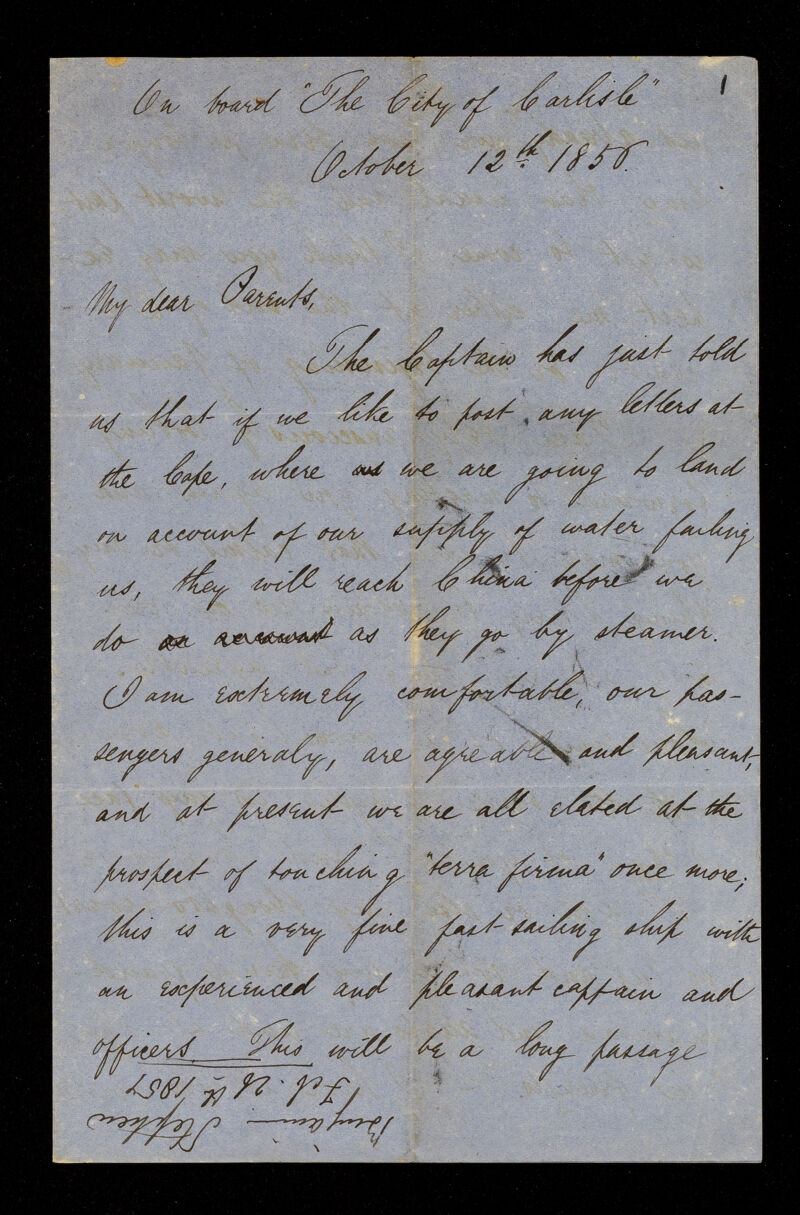 1
On board "The City of Carlisle"
October 12th 1856.
My dear Parents,
The Captain has just told
us that if we like to post any letters at
the Cape, where we are going to land
on account of our supply of water failing
us, they will reach China before we
do as they go by steamer.
I am extremely comfortable, our pas-
sengers generaly, are agreable and pleasant,
and at present we are all elated at the
prospect of touching "terra firma" once more;
this is a very fine fast sailing ship with
an experienced and pleasant captain and
officers. This will be a long passage
Benjamin Stephen
Feb. 26th 1857